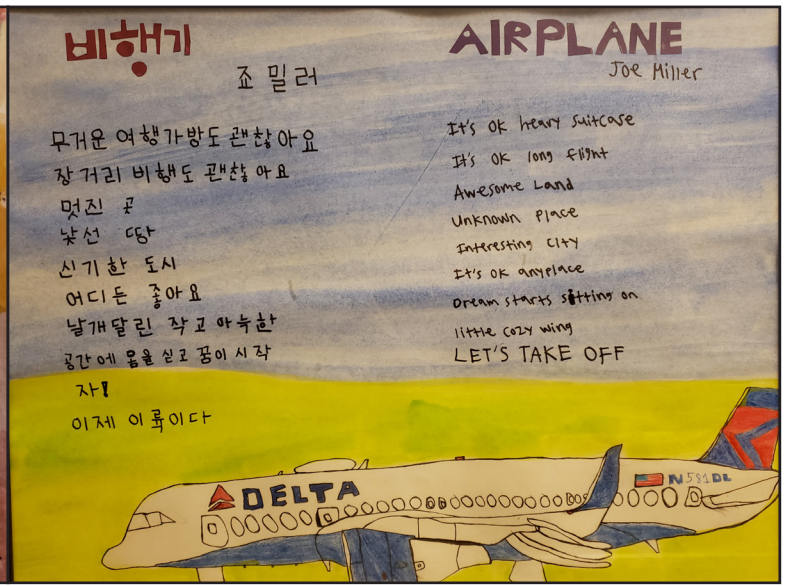 비행기
죠 밀러
무거운 여행가방도 괜찮아요
장거리 비행도 괜찮아요
멋진 곳
낯선 땅
신기한 도시
어디든 좋아요
날개달린 작고 아늑한
공간에 몸을 싣고 꿈이 시작
자!
이제 이륙이다
AIRPLANE
Joe Miller
It's OK heavy suitcase
It's OK long flight
Awesome Land
Unknown Place
Interesting City
It's OK anyplace
Dream starts sitting on
little cozy wing
LET'S TAKE OFF
DELTA
N581DL